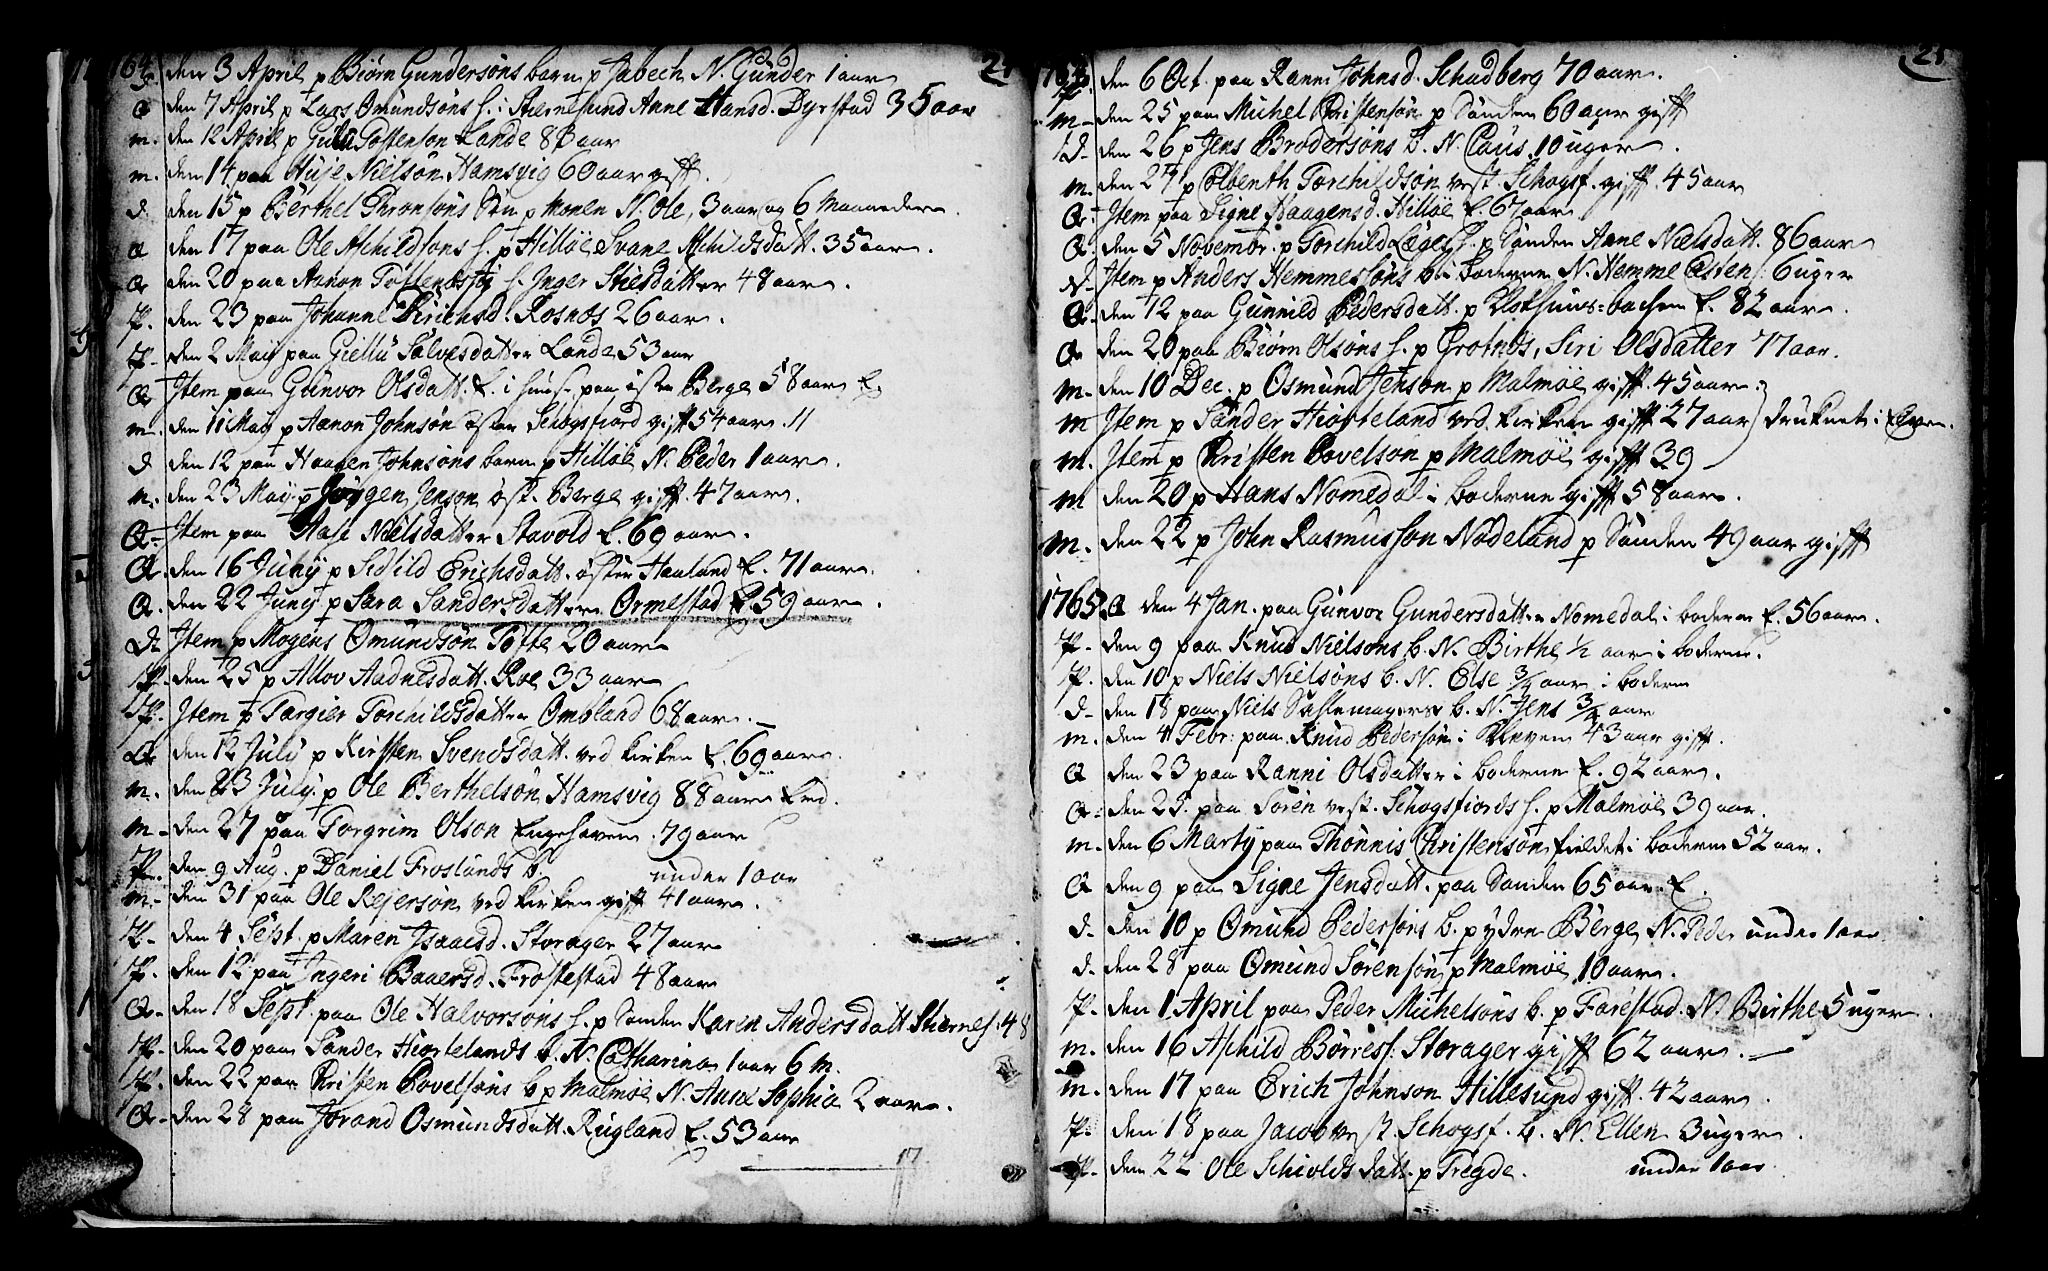 1764 24
d. den 3 April p Biørn Gundersøns barn p Jabech N. Gunder 1 aar
Q den 7 April p Lars Omundsøns H. i Stiernesund Anne Hansd. Dyrstad 35 aar
m. den 12 April p Tostenson Lande 88 aar
m. den 14 paa Huje Nielsøn Hamsvig 60 aar gifft.
d. den 15 p Berthel Thronsøns Søn p Monen N. Ole, 3 aar og 6 Maaneder.
Q den 17 paa Ole Aschildsøns H. p Hilløe Svane Aschildsdatt. 35 aar.
Q den 20 paa Aanon H. Inger Stiesdatter 48 aar.
P. den 23 paa Johanne Dirichsd. Rosnæs 26 aar.
P. den 2 Maij paa Giellu Salvesdatter Lande 53 aar
Q Item paa Gunvor Olsdatt. E. i huus paa øster Berge 58 aar E.
m. den 11 Maij p Aanon Johnsøn øster Schogsfiord gifft 54 aar. 11
d den 12 paa Haagen Johnsøns barn p Hilløe N. Peder 1 aar.
m. den 23 Maij p Jørgen Jenson øst. Berge gifft. 47 aar.
Q- Item paa Aase Nielsdatter Stavold E. 69 aar.
Q. den 16 Juny p Sidsild Erichsdatt. øster Haaland E. 71 aar.
Q. den 22 Juny p Sara Sandersdatter Ormestad E. 59 aar.
d- Item p Mogens Omundsøn Tofte 20 aar
P. den 25 p Allov Aadnesdatt. Roe 33 aar
P. Item p Targier Torchildsdatter Ombland 68 aar.
Q- den 12 July p Kirsten Svendsdatt. ved kirken E. 69 aar.
m. den 23 July. p Ole Berthelsøn Hamsvig 88 aar
m- den 27 paa Torgrim Olson Engehaven. 79 aar
P. den 9 Aug. p Daniel Froslands b. under 1 aar
m- den 31 paa Ole Rejersøn ved kirken gifft 41 aar.
P- den 4 Sept. p Maren Isaacsd. Storager 27 aar
P. den 12 paa Ingeri Baaersd. Frostestad 48 aar
Q- den 18 Sept. paa Ole Halvorsøns H. p Sanden Karen Andersdatt Stiernes. 48
P- den 20 paa Sander Hiortelands b. N. Catharina 1 aar 6 m.
P. den 22 paa Christen Povelsøns b. p Malmøe N. Anne Sophia 2 aar.
Q- den 28 paa Jorand Osmundsdatt. Rugland E. 53 aar
17
1764 25
P. den 6 Oct. paa Ranni Johnsd. Schadberg 70 aar.
m- den 25 paa Michel Christensøn p Sanden 60 aar gifft
d- den 26 p Jens Brodersøns b. N. Claus 10 uger.
m. den 27 p Colbenth Torchildsøn vest. Schogsf. gifft. 45 aar
Q- Item paa Signe Haagensd. Hilløe E. 67 aar
Q. den 5 Novembr. p Torchild Lægers H. p Sanden Anne Nielsdatt. 86 aar
d- Item p Anders Hemmesøns b. i boderne N. Hemme Castens. 6 uger
Q- den 12 paa Gunnild Pedersdatt. p Klokhuus-bachen E. 82 aar.
Q den 20 paa Biørn Olsøns H. p Grotnæs, Siri Olsdatter 77 aar.
m- den 10 Dec. p Osmund Jenson p Malmøe gifft. 45 aar.
m Item p Sander Hiorteland ved kirken gifft 27 aar druknet i Elven.
m. Item p Christen Povelsøn p Malmøe gifft 39
m den 20 p Hans Nomedal i boderne gifft 58 aar.
m. den 22 p John Rasmussøn Nodeland p Sanden 49 aar gifft
1765. Q den 4 Jan. paa Gunvor Gundersdatter Nomedal i boderne E. 56 aar.
P. den 9 paa Knud Nielsøns b. N. Birthe 1/2 aar i boderne.
P. den 10 p Niels Nielsøns b. N. Else 3/4 aar i boderne
d- den 18 paa Niels Sadlemagers b. N. Jens 3/4 aar
m. den 4 Febr: paa Knud Pedersøn i Kleven 43 aar gifft.
Q den 23 paa Ranni Olsdatter i boderne E. 92 aar.
Q- den 25. paa Soren vest. Schogsfiords H. p Malmøe 39 aar.
m. den 6 Marty paa Thønnis Christensøn fieldet i boderne 52 aar.
Q den 9 paa Signe Jensdatt. paa Sanden 65 aar. E.
d- den 10 p Omund Pedersøns b. p ydre Berge N. Peder under 1 aar
d. den 28 paa Omund Sørensøn p Malmøe 10 aar.
P. den 1 April paa Peder Michelsøns b. p Farestad N. Birthe 5 uger.
m. den 16 Aschild Børres: Storager gifft 62 aar.
m. den 17 paa Erich Johnson Hillesund gifft. 42 aar.
P. den 18 paa Jacob vest. Schogsf. b. N. Ellen 3 uger.
P. den 22 Ole Schiolds datt. p Tregde. under 1 aar.